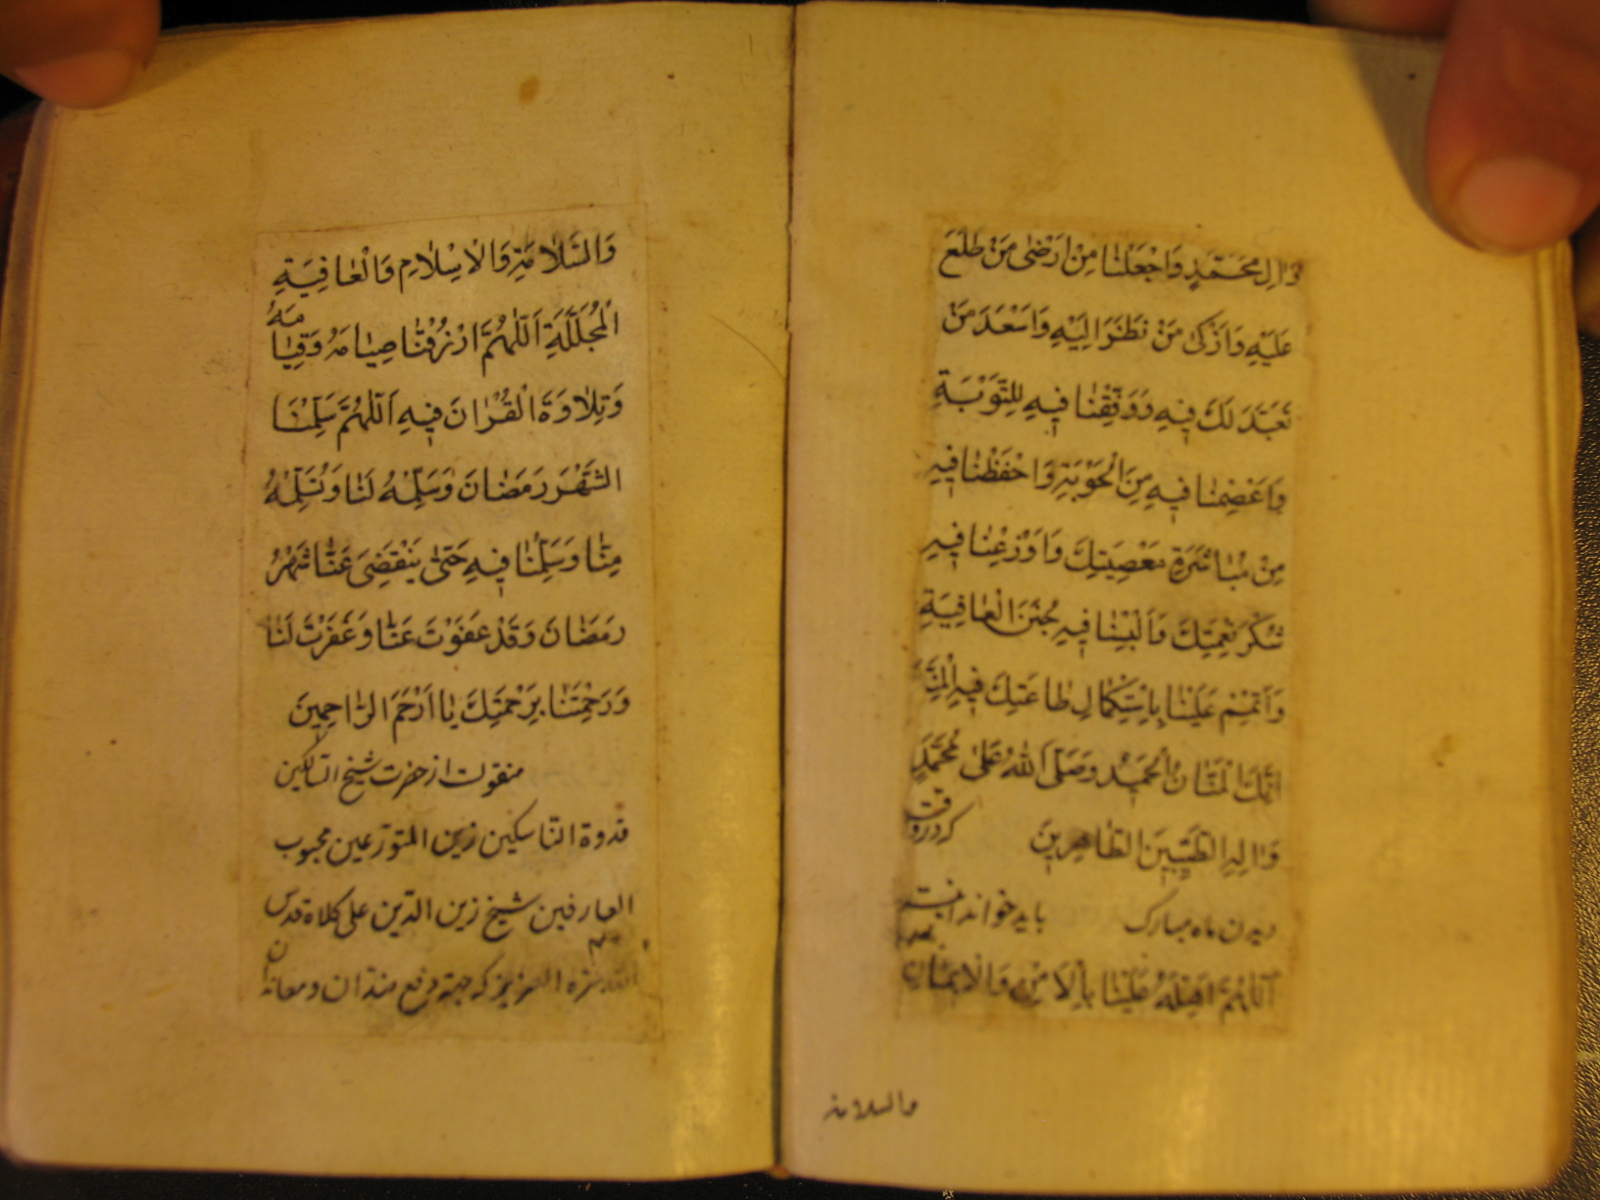 وَالِ مُحَمَّدٍ وَاجْعَلْنَا مِنْ اَرْضٰى مَنْ طَلَعَ
عَلَيْهِ وَاَزْكٰى مَنْ نَظَرَ اِلَيْهِ وَاَسْعَدَ مَنْ
تَعَبَّدَ لَكَ فِيهِ وَوَفِّقْنَا فِيهِ لِلتَّوْبَةِ
وَاعْصِمْنَا فِيهِ مِنَ الْحَوْبَةِ وَاحْفَظْنَا فِيهِ
مِنْ مُبَاشَرَةِ مَعْصِيَتِكَ وَاَوْزِعْنَا فِيهِ
شُكْرَ نِعْمَتِكَ وَاَلْبِسْنَا فِيهِ جُنَنَ الْعَافِيَةِ
وَاَتْمِمْ عَلَيْنَا بِاِسْتِكْمَالِ طَاعَتِكَ فِيهِ الْمِنَّةَ
اِنَّكَ الْمَنَّانُ الْحَمِيدُ وَصَلَّى اللّٰهُ عَلٰى مُحَمَّدٍ
وَالِهِ الطَّيِّبِينَ الطَّاهِرِينَ كه در وقت
ديدن ماه مبارك بايد خواند
اَللّٰهُمَّ اَهِلَّهُ عَلَيْنَا بِالْاَمْنِ وَالْاِيمَانِ
والسلامة
وَالسَّلَامَةِ وَالْاِسْلَامِ وَالْعَافِيَةِ
الْمُجَلَّلَةِ اَللّٰهُمَّ ارْزُقْنَا صِيَامَهُ وَقِيَامَهُ
وَتِلَاوَةَ الْقُرْانَ فِيهِ اَللّٰهُمَّ سَلِّمْنَا
الشَّهْرَ رَمَضَانَ وَسَلِّمْهُ لَنَا وَتَسَلَّمْهُ
مِنَّا وَسَلِّمْنَا فِيهِ حَتّٰى يَنْقَضِىَ عَنَّا شَهْرُ
رَمَضَانَ وَقَدْ عَفَوْتَ عَنَّا وَغَفَرْتَ لَنَا
وَرَحِمْتَنَا بِرَحْمَتِكَ يَا اَرْحَمَ الرَّاحِمِينَ
منقولت از حضرت شيخ السالكين
قدوة الناسكين زين المتورّعين محبوب
العارفين شيخ زين الدين على كلاه قدس
الله سره العزيز كه جهة دفع